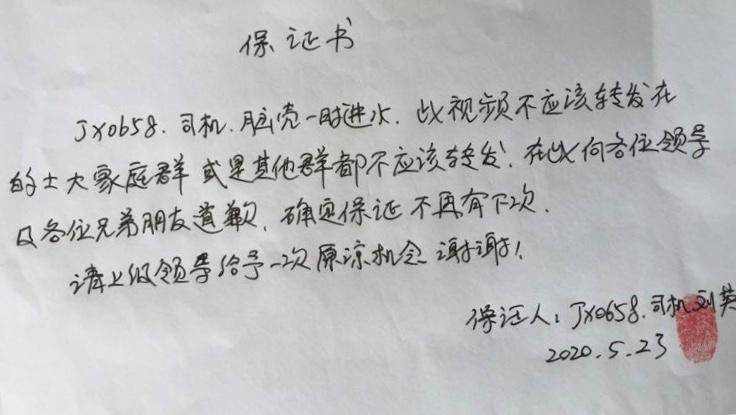 保证书
JX0658.司机.脑壳一时进水.此视频不应该转发在
的士大家庭群 或是其他群都不应该转发.在此向各位领导
及各位兄弟朋友道歉.确定保证不再有下次.
请上级领导给予一次原谅机会 谢谢!
保证人:JX0658.司机刘英
2020.5.23